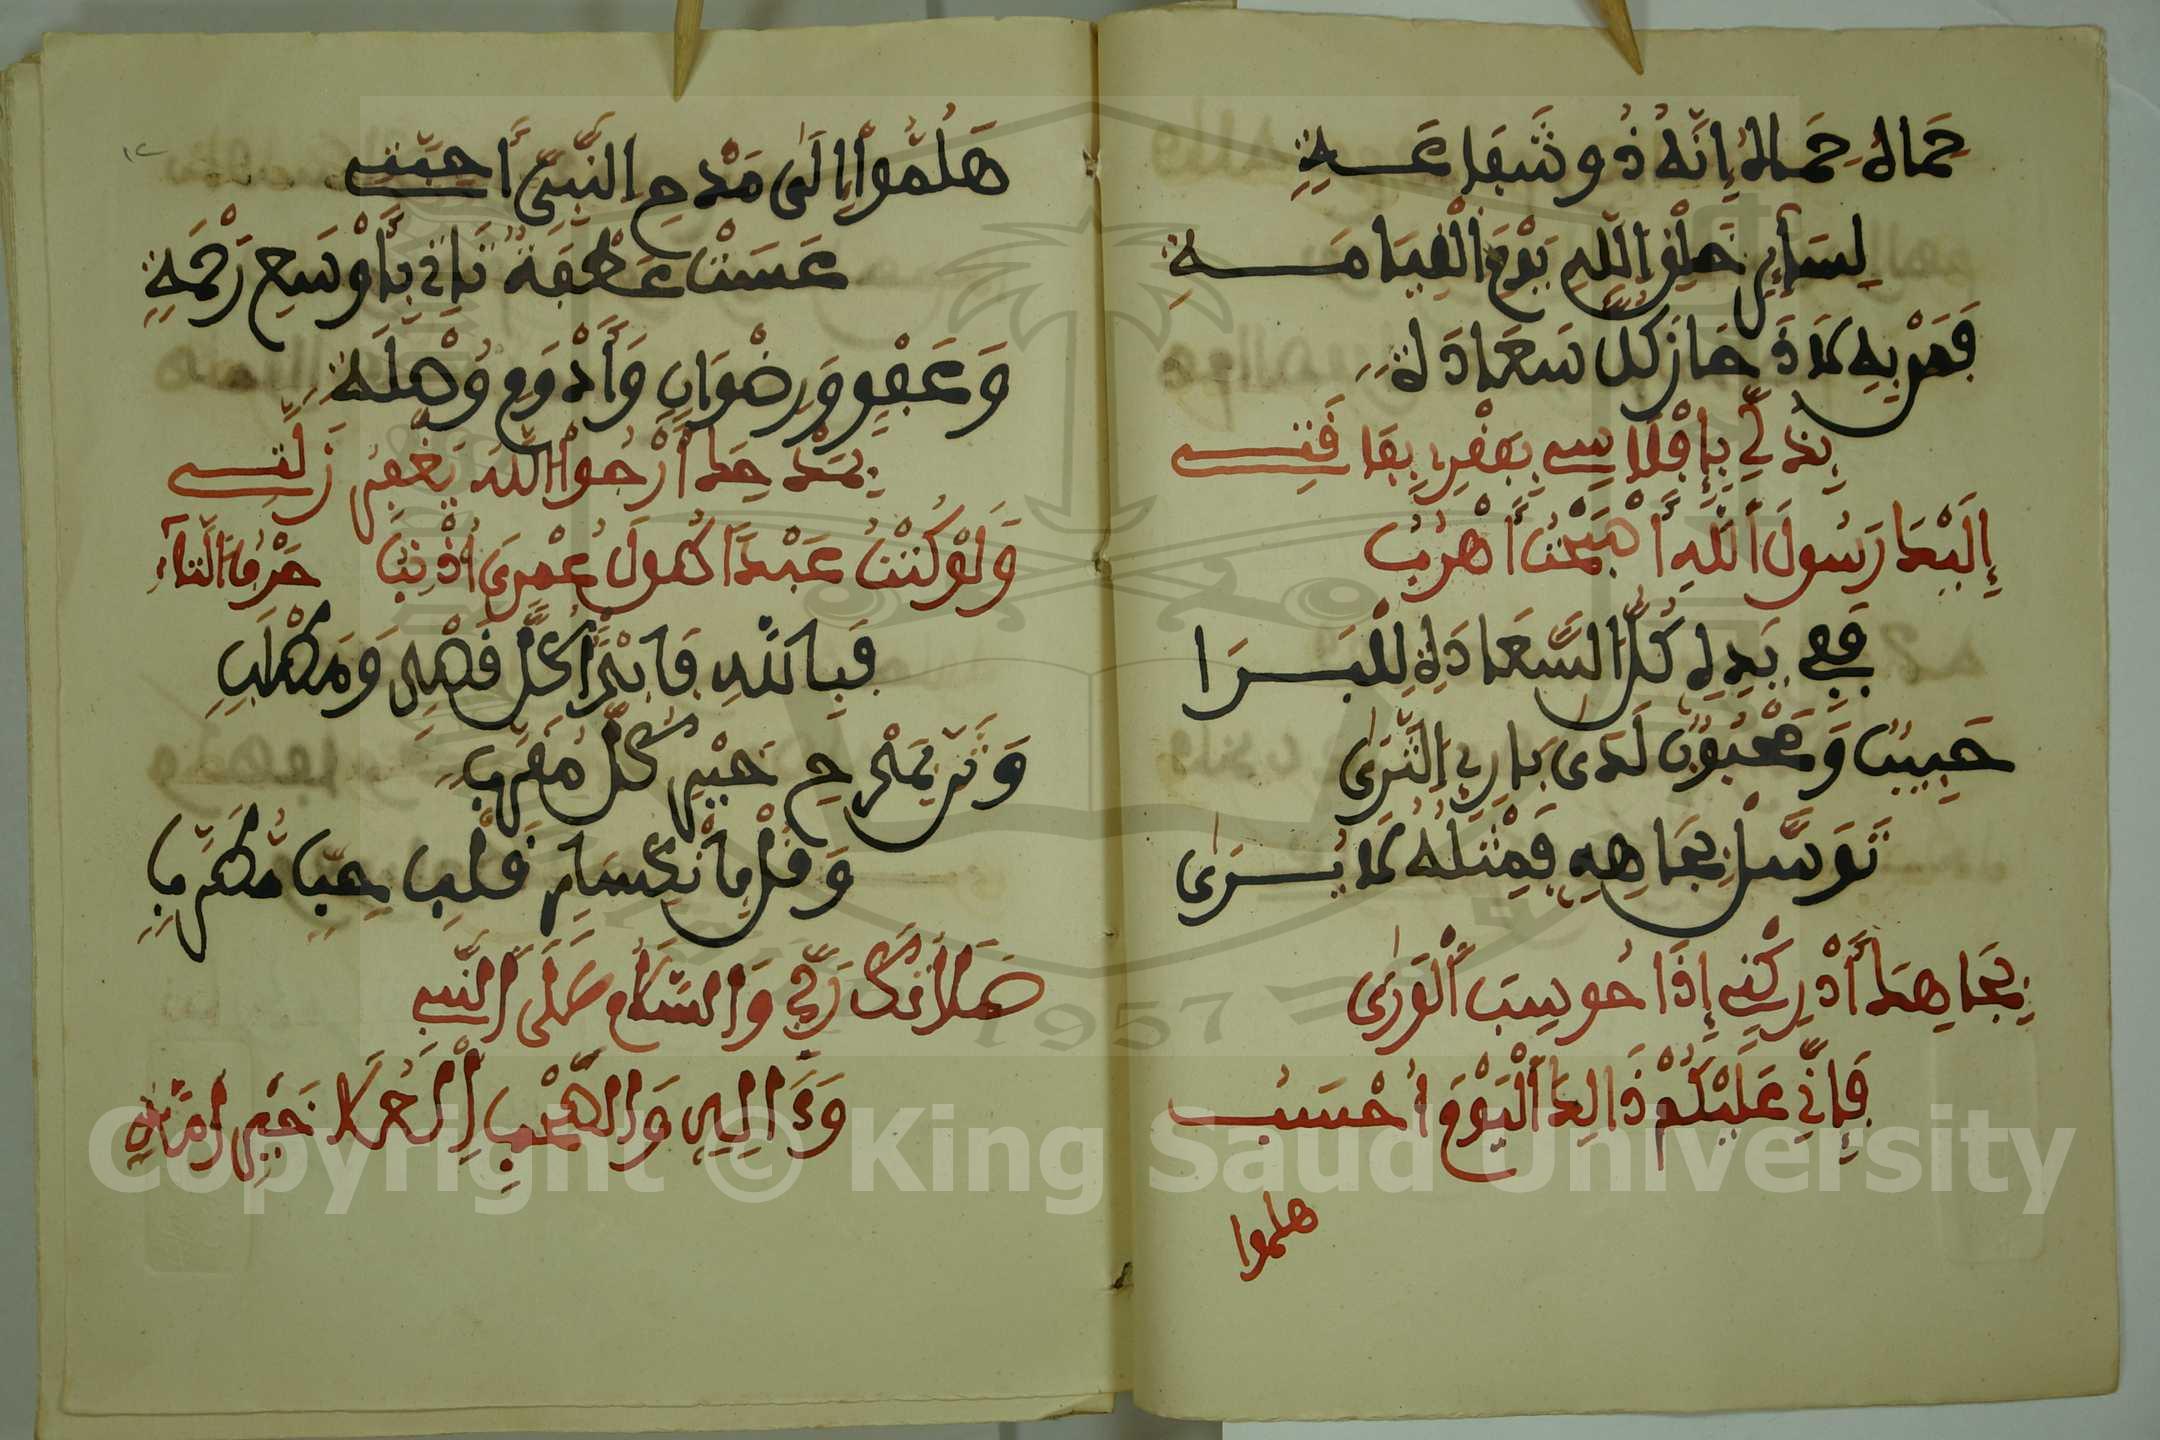 حِمَاهُ حِمَاهُ إِنَّهُ ذُو شَفَاعَةٍ
لِسَائِرِ خَلْقِ اللَّهِ يَوْمَ الْقِيَامَةِ
فَمَنْ بِهِ لَاذَ حَازَ كُلَّ سَعَادَةٍ
بِذُلِّي بِإِفْلَاسِي بِفَقْرِي بِفَاقَتِي
إِلَيْهَا رَسُولَ اللَّهِ أَصْبَحْتُ أَهْرُبُ
فَفِي يَدِهِ كُلُّ السَّعَادَةِ لِلْبَرَا
حَبِيبٌ وَمَحْبُوبٌ لَدَى بَارِئِ الثَّرَى
تَوَسَّلْ بِجَاهِهِ فَمِثْلُهُ لَا يُرَى
بِجَاهِهَا أَدْرِكْنِي إِذَا حُوسِبَ الْوَرَى
فَإِنِّي عَلَيْكُمْ ذَالِهَا الْيَوْمَ أُحْسَبُ
هلموا
هَلُمُّوا إِلَى مَدْحِ النَّبِيِّ أَحِبَّتِي
عَسَتْ عَطْفَةٌ تَاتِي بِأَوْسَعِ رَحْمَةٍ
وَعَفْوٍ وَرِضْوَانٍ وَأَدْوَمِ وُصْلَةٍ
بِمَدْحِهَا أَرْجُوا اللَّهَ يَغْفِرُ زَلَّتِي
وَلَوْ كُنْتُ عَبْدًا طُولَ عُمْرِيَ أُذْنِبُ
فَبِاللَّهِ فَابْتَدِأْ كُلَّ قَصْدٍ وَمَطْلَبٍ
وَثَنِّ بِمَدْحِ خَيْرِ كُلِّ مُقَرَّبٍ
وَقُلْ بِانْكِسَارِ قَلْبِ صَبٍّ مُطَرَّبٍ
صَلَاتُكَ رَبِّي وَالسَّلَامُ عَلَى النَّبِي
وَءَالِهِ وَالصَّحْبِ
Copyright © King Saud University
1957